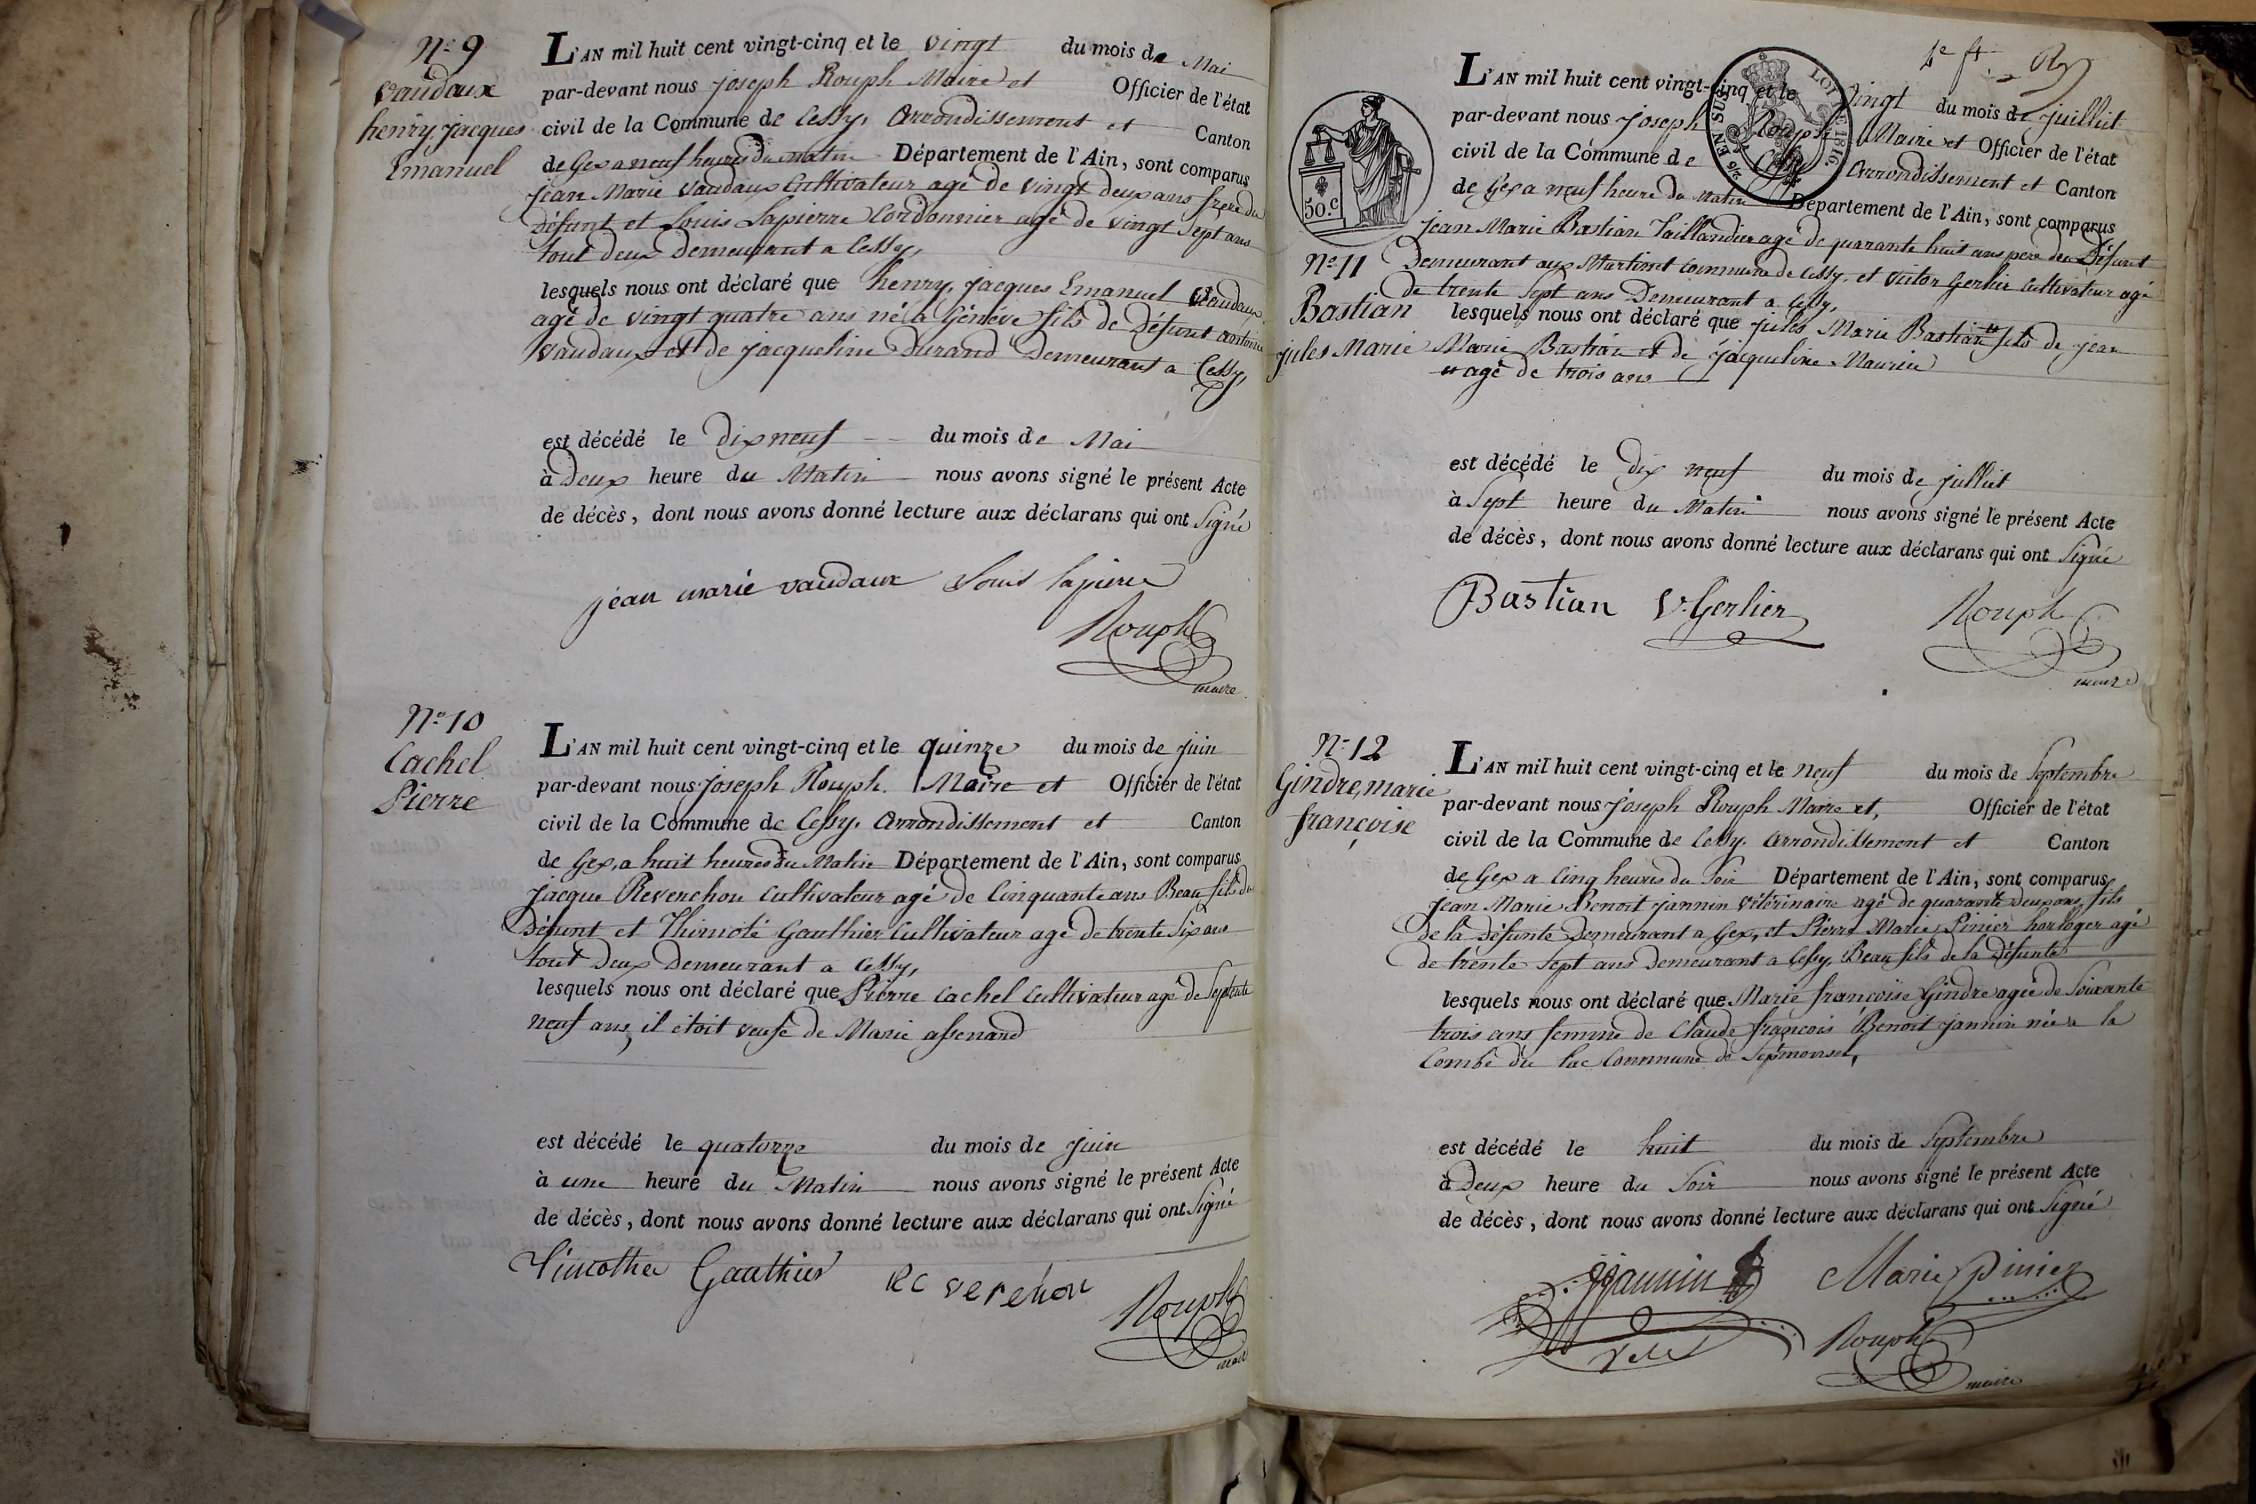 N.º 9
Vaudaux
henry, jacques
Emanuel
L'AN mil huit cent vingt-cinq et le vingt du mois de Mai
par-devant nous joseph Rouph Maire et Officier de l'état
civil de la Commune de Cessy, Arrondissement et Canton
de Gex a neuf heures du matin Département de l'Ain, sont comparus
jean Marie Vaudaux Cultivateur agé de vingt deux ans frere du
Défunt et Louis Lapierre Cordonnier agé de vingt sept ans
tout deux Demeurant a Cessy,
lesquels nous ont déclaré que henry, jacques Emanuel Vaudaux
agé de vingt quatre ans né a Généve fils de Défunt antoine
Vaudaux et de jacqueline Durand Demeurant a Cessy,
est décédé le Dix neuf du mois de Mai
à Deux heure du Matin nous avons signé le présent Acte
de décès, dont nous avons donné lecture aux déclarans qui ont Signé
jean marie vaudaux Louis lapierre
Rouph
maire
N.º 10
Cachel
Pierre
L'AN mil huit cent vingt-cinq et le quinze du mois de juin
par-devant nous joseph Rouph. Maire et Officier de l'état
civil de la Commune de Cessy. Arrondissement et Canton
de Gex, a huit heures du Matin Département de l'Ain, sont comparus
jacque Revenchon Cultivateur agé de Cinquante ans Beau fils du
Défunt et Thimoté Gauthier Cultivateur agé de trente Six ans
tout Deux Demeurant a Cessy,
lesquels nous ont déclaré que Pierre Cachel Cultivateur agé de Septente
neuf ans, il étoit veufe de Marie assenard
est décédé le quatorze du mois de juin
à une heure du Matin nous avons signé le présent Acte
de décès, dont nous avons donné lecture aux déclarans qui ont Signé
Timothee Gauthier
Rouph
maire
4e ft
50.c
EN SUS
LOI DE 1816
N.º 11
Bastian
jules Marie
L'AN mil huit cent vingt-cinq et le vingt du mois de juillet
par-devant nous joseph Rouph Maire et Officier de l'état
civil de la Commune de Cessy Arrondissement et Canton
de Gex a neuf heure du Matin Département de l'Ain, sont comparus
jean Marie Bastian Taillandier agé de quarante huit ans pere du Défunt
Demeurant aux Martinet Commune de Cessy, et Victor Gerlier Cultivateur agé
de trente Sept ans Demeurant a Cessy,
lesquels nous ont déclaré que jules Marie Bastian fils de jean
Marie Bastian et de jacqueline Maurin
agé de trois ans
est décédé le Dix neuf du mois de juillet
à Sept heure du Matin nous avons signé le présent Acte
de décès, dont nous avons donné lecture aux déclarans qui ont Signé
Bastian V. Gerlier
Rouph
maire
N.º 12
Gindre, marie
françoise
L'AN mil huit cent vingt-cinq et le neuf du mois de Septembre
par-devant nous joseph Rouph Maire et, Officier de l'état
civil de la Commune de Cessy. Arrondissement et Canton
de Gex a Cinq heures du Soir Département de l'Ain, sont comparus
jean Marie Benoit jannin Vétérinaire agé de quarante deux ans fils
de la défunte Demeurant a Gex, et Pierre Marie Pinier horloger agé
de trente Sept ans Demeurant a Cessy. Beau fils de la Défunte
lesquels nous ont déclaré que Marie françoise Gindre agée de Soixante
trois ans femme de Claude françois Benoit jannin née a la
Combe du lac Commune de Septmoncel,
est décédé le huit du mois de Septembre
à Deux heure du Soir nous avons signé le présent Acte
de décès, dont nous avons donné lecture aux déclarans qui ont Signé
jannin Marie Pinier
Rouph
maire